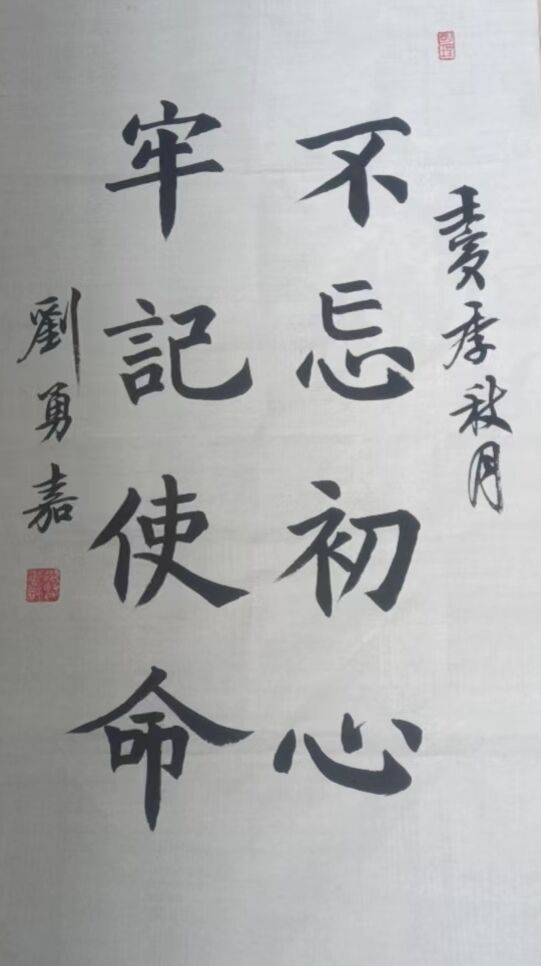 壬寅季秋月
不忘初心
牢記使命
劉勇嘉